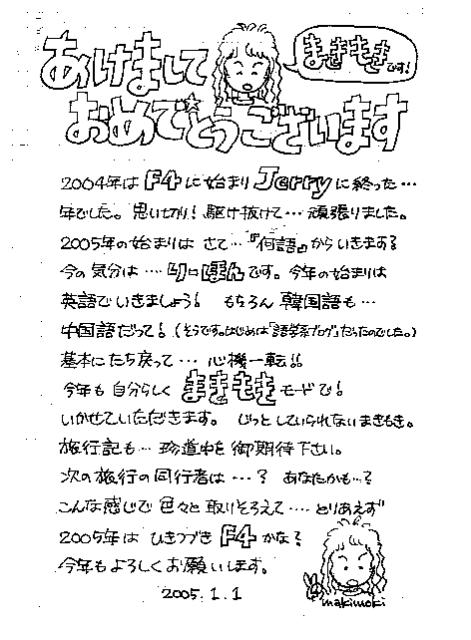 あけまして
まきもきです!
おめでとうございます
2004年は F4に始まり Jerryに終った…
年でした。思い切り!駆け抜けて…頑張りました。
2005年の始まりは さて…『何語』からいきます?
今の気分は…にほんです。今年の始まりは
英語でいきましょう! もちろん 韓国語も…
中国語だって!(そうです。はじめは「語学系ブログ」だったのでした。)
基本にたち戻って… 心機一転!!
今年も 自分らしく まきもきモードで!
いかせていただきます。 じっとしていられないまきもき。
旅行記も… 珍道中を御期待下さい。
次の旅行の同行者は…? あなたかも…?
こんな感じで 色々と取りそろえて…. とりあえず
2005年は ひきつづき F4かな?
今年もよろしくお願いします。
2005.1.1
makimoki